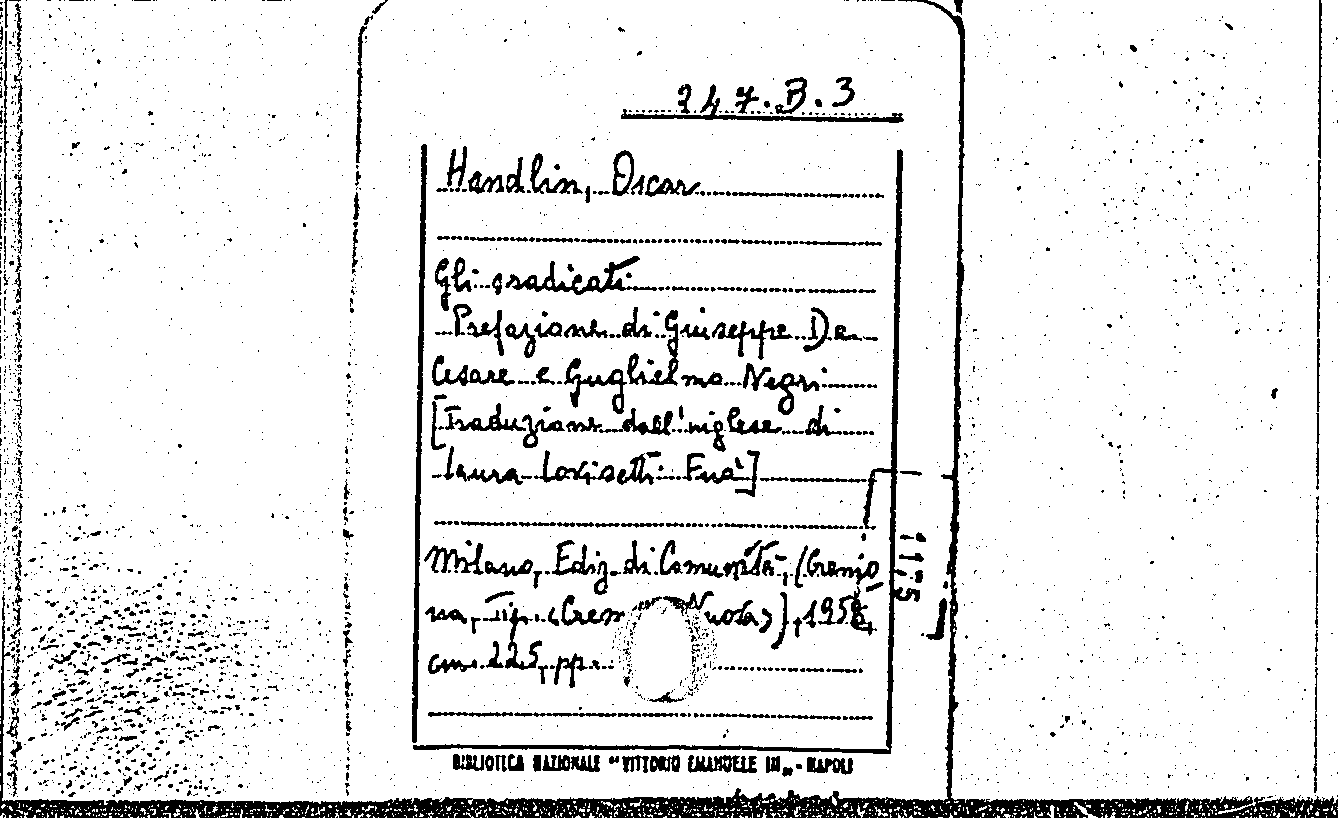 247.B.3
Handlin, Oscar
Gli sradicati
Prefazione di Giuseppe De
Cesare e Guglielmo Negri
[Traduzione dall'inglese di
Laura Lovisetti Fuà]
Milano, Ediz. di Comunità, (Cremo
na, Tip. "Crem Nuova"), 1958,
cm. 22.5, pp.
BIBLIOTECA NAZIONALE "VITTORIO EMANUELE III" - NAPOLI